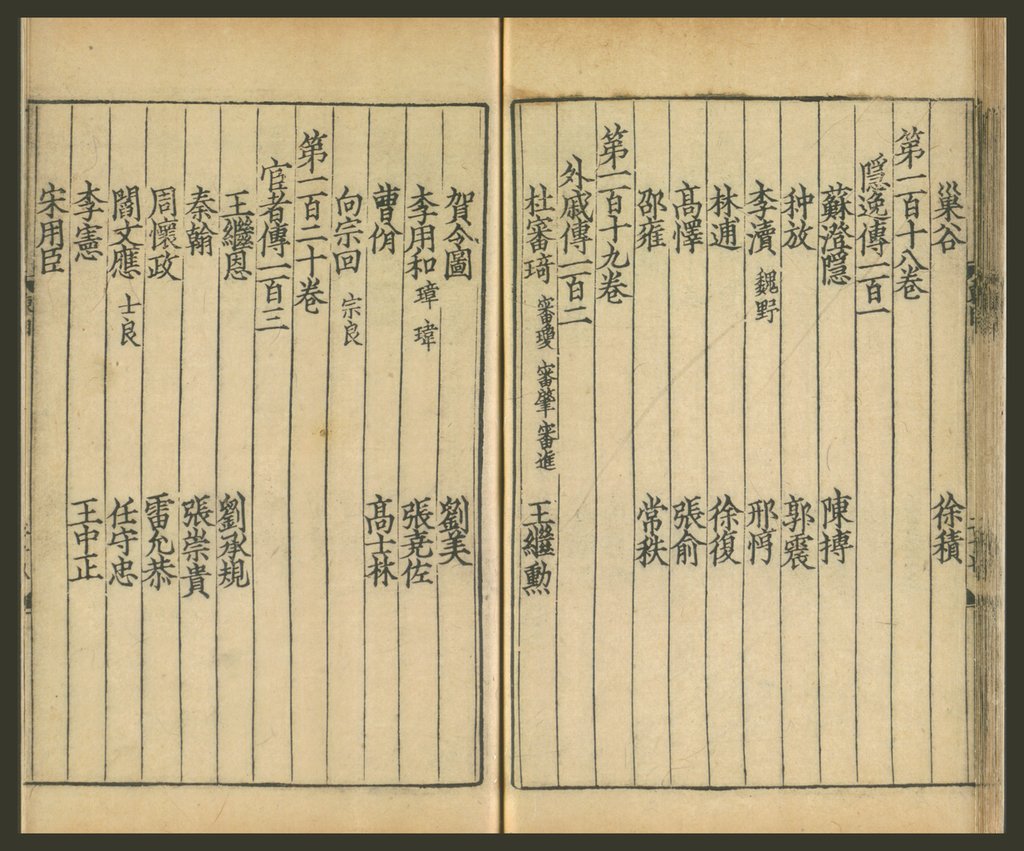 巢谷 徐積
第一百十八卷
隱逸傳一百一
蘇澄隱 陳摶
种放 郭震
李瀆 魏野 邢惇
林逋 徐復
高懌 張俞
邵雍 常秩
第一百十九卷
外戚傳一百二
杜審琦 審瓊 審肇 審進 王繼勳
賀令圖 劉美
李用和 璋 瑋 張堯佐
曹佾 高士林
向宗回 宗良
第一百二十卷
宦者傳一百三
王繼恩 劉承規
秦翰 張崇貴
周懷政 雷允恭
閻文應 士良 任守忠
李憲 王中正
宋用臣